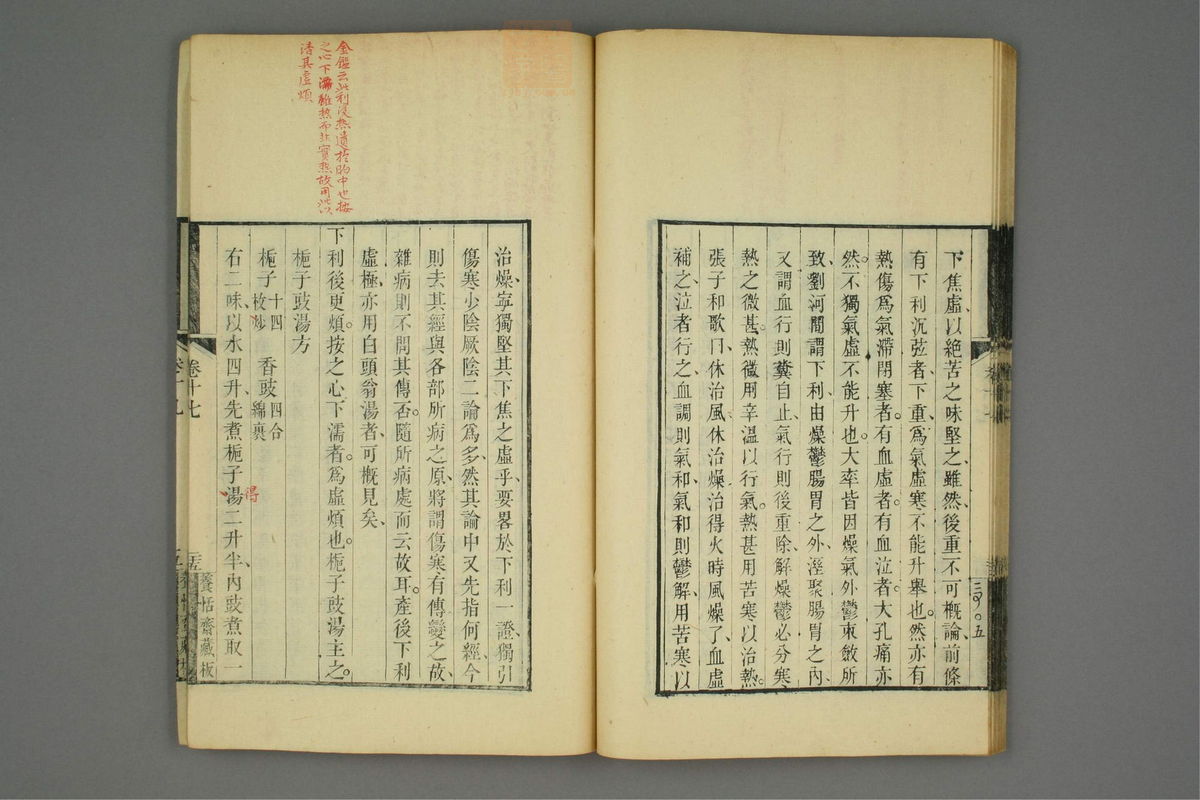 下焦虛、以絕苦之味堅之、雖然、後重不可概論、前條
有下利沉弦者、下重、爲氣虛寒不能升舉也。然亦有
熱傷爲氣滯閉塞者。有血虛者。有血泣者。大孔痛亦
然。不獨氣虛不能升也。大率皆因燥氣外鬱束斂所
致、劉河間謂下利由燥鬱腸胃之外、溼聚腸胃之內、
又謂血行則糞自止、氣行則後重除、解燥鬱必分寒
熱之微甚。熱微用辛溫以行氣。熱甚用苦寒以治熱。
張子和歌曰、休治風、休治燥、治得火時風燥了、血虛
補之、泣者行之、血調則氣和、氣和則鬱解、用苦寒以
三〇〇五
治燥、寧獨堅其下焦之虛乎、要畧於下利一證、獨引
傷寒少陰厥陰二論爲多、然其論中又先指何經、今
則去其經與各部所病之原、將謂傷寒有傳變之故、
雜病則不問其傳否。隨所病處而云故耳。產後下利
虛極、亦用白頭翁湯者、可概見矣、
下利後更煩。按之心下濡者。爲虛煩也。梔子豉湯主之。
梔子豉湯方
梔子十四枚炒 香豉四合綿裹
右二味、以水四升、先煮梔子湯二升半、內豉煮取一
得
卷十七
二五
養恬齋藏板
金鑑云此利後熱遺於胸中也按
之心下濡雖熱而非實熱故用此以
清其虛煩